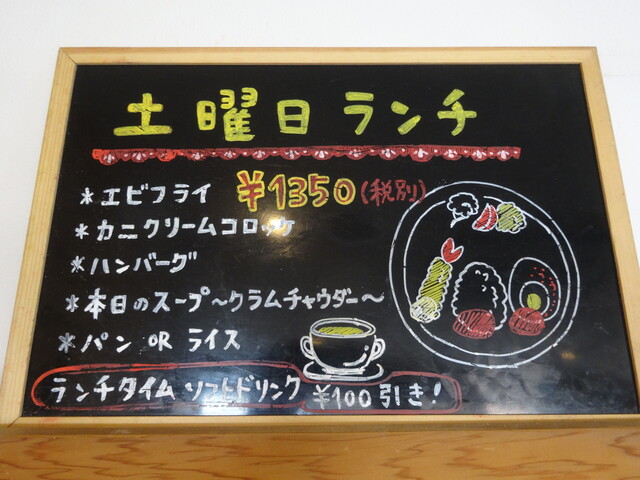 土曜日ランチ
*エビフライ ¥1350(税別)
*カニクリームコロッケ
*ハンバーグ
*本日のスープ~クラムチャウダー~
*パン OR ライス
ランチタイム ソフトドリンク ¥100引き!